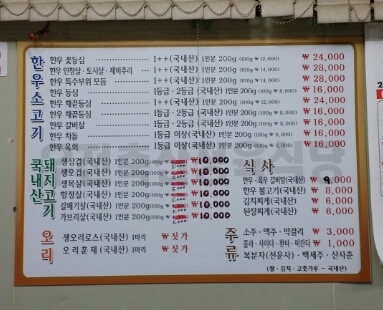 한우소고기
한우 꽃등심 1++(국내산) 1인분 200g (100g ₩12,000) ₩ 24,000
한우 안창살·토시살·제비추리 1++(국내산) 1인분 200g (100g ₩14,000) ₩ 28,000
한우 특수부위 모듬 1++(국내산) 1인분 200g (100g ₩14,000) ₩ 28,000
한우 등심 1등급·2등급(국내산) 1인분 200g (100g ₩8,000) ₩ 16,000
한우 채끝등심 1++(국내산) 1인분 200g ₩ 24,000
한우 채끝등심 1등급·2등급(국내산) 1인분 200g ₩ 16,000
한우 갈비살 1등급·2등급(국내산) 1인분 200g ₩ 16,000
한우 차돌 1등급이상(국내산) 1인분 200g (100g ₩8,000) ₩ 16,000
한우 육회 1등급이상(국내산) 1인분 200g (100g ₩8,000) ₩ 16,000
돼지고기 국내산
생오겹(국내산) 1인분 200g ₩10,000
생삼겹(국내산) 1인분 200g ₩10,000
생목살(국내산) 1인분 200g ₩10,000
항정살(국내산) 1인분 200g ₩10,000
갈매기살(국내산) 1인분 200g ₩10,000
가브리살(국내산) 1인분 200g ₩10,000
오리
생오리로스(국내산) 1마리 ₩ 싯가
오리훈제(국내산) 1마리 ₩ 싯가
식사
한우·육우 갈비탕(국내산) ₩ 9,000
한우 불고기(국내산) ₩ 8,000
김치찌개(국내산) ₩ 6,000
된장찌개(국내산) ₩ 6,000
주류
소주·맥주·막걸리 ₩ 3,000
콜라·사이다·환타·비란다 ₩ 1,000
복분자(선운사)·백세주·산사춘
(쌀·김치·고춧가루 - 국내산)